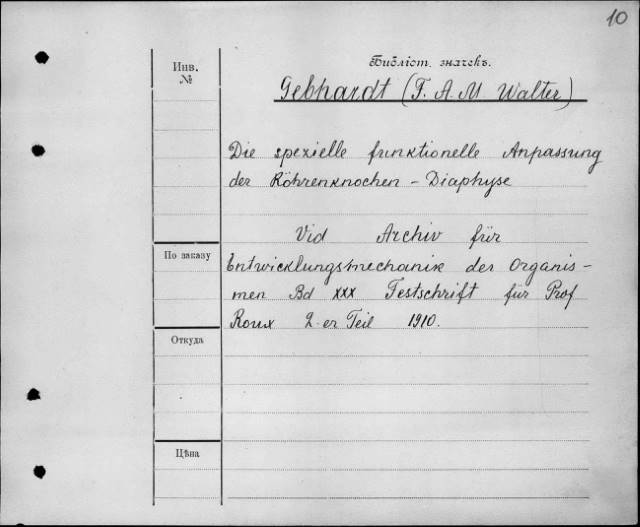 10
Библіот. значекъ.
Инв.
№
Gebhardt (F. A. M Walter)
Die spezielle funktionelle Anpassung
der Röhrenknochen - Diaphyse
Vid Archiv für
По заказу
Entwicklungsmechanik der Organis-
men Bd xxx Festschrift für Prof
Roux 2-er Teil 1910.
Откуда
Цѣна